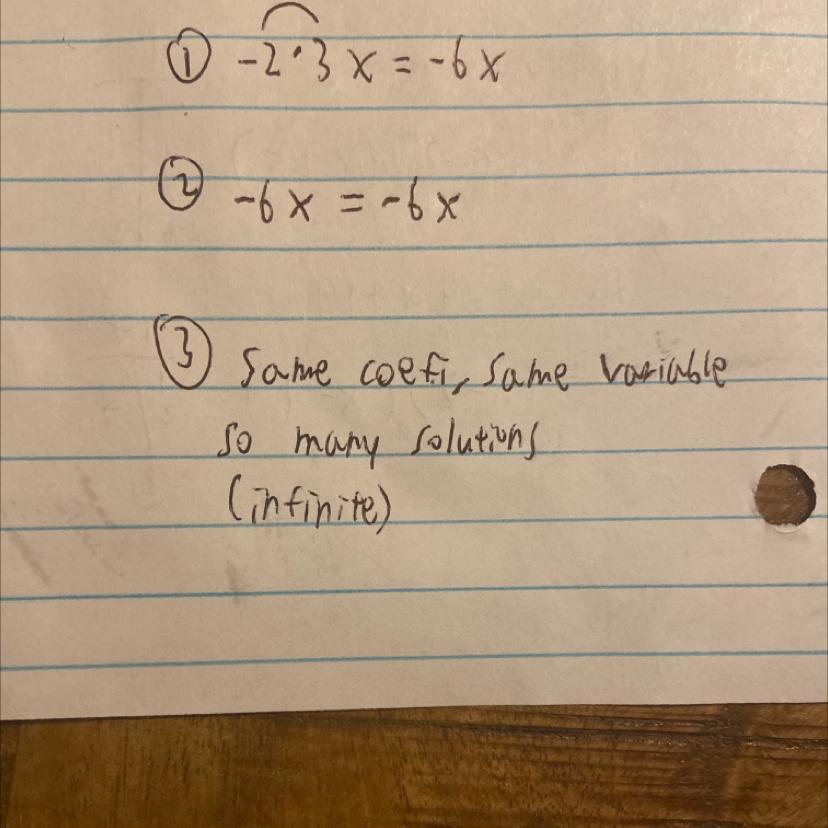 ① -2·3x = -6x
② -6x = -6x
③ Same coefi, same variable
so many solutions
(infinite)